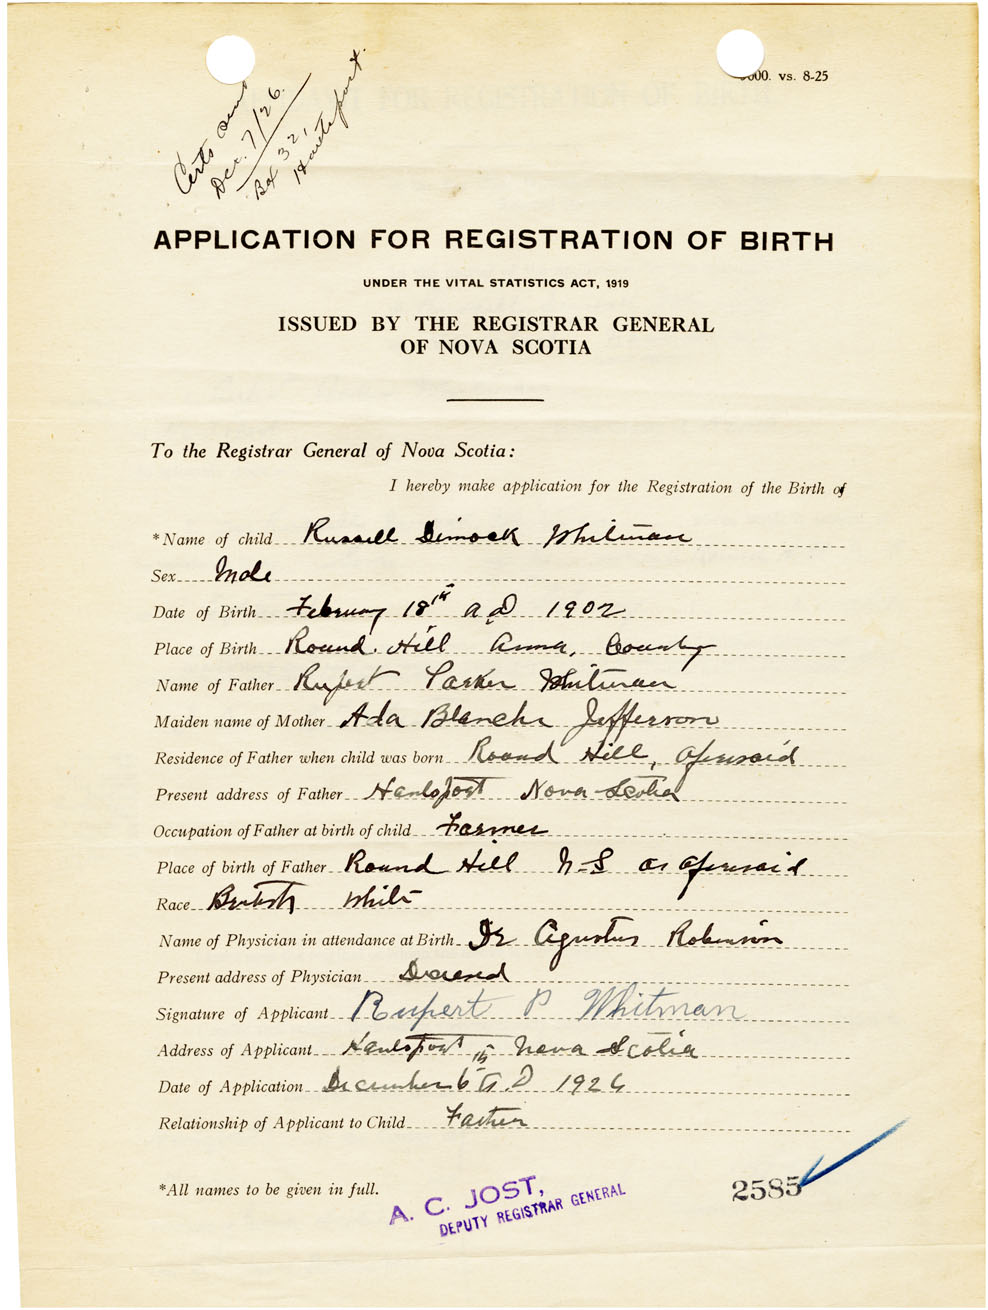 Certs sent
Dec. 7/26.
Box 321,
Hantsport.
000. vs. 8-25
APPLICATION FOR REGISTRATION OF BIRTH
UNDER THE VITAL STATISTICS ACT, 1919
ISSUED BY THE REGISTRAR GENERAL
OF NOVA SCOTIA
To the Registrar General of Nova Scotia:
I hereby make application for the Registration of the Birth of
*Name of child Russell Dimock Whitman
Sex Male
Date of Birth February 18th A.D 1902
Place of Birth Round Hill Anna. County
Name of Father Rupert Parker Whitman
Maiden name of Mother Ada Blanche Jefferson
Residence of Father when child was born Round Hill, aforesaid
Present address of Father Hantsport Nova Scotia
Occupation of Father at birth of child Farmer
Place of birth of Father Round Hill N-S as aforesaid
Race British White
Name of Physician in attendance at Birth Dr Agustus Robinson
Present address of Physician Deceased
Signature of Applicant Rupert P Whitman
Address of Applicant Hantsport Nova Scotia
Date of Application December 6th A.D 1926
Relationship of Applicant to Child Father
*All names to be given in full.
A. C. JOST,
DEPUTY REGISTRAR GENERAL
2585